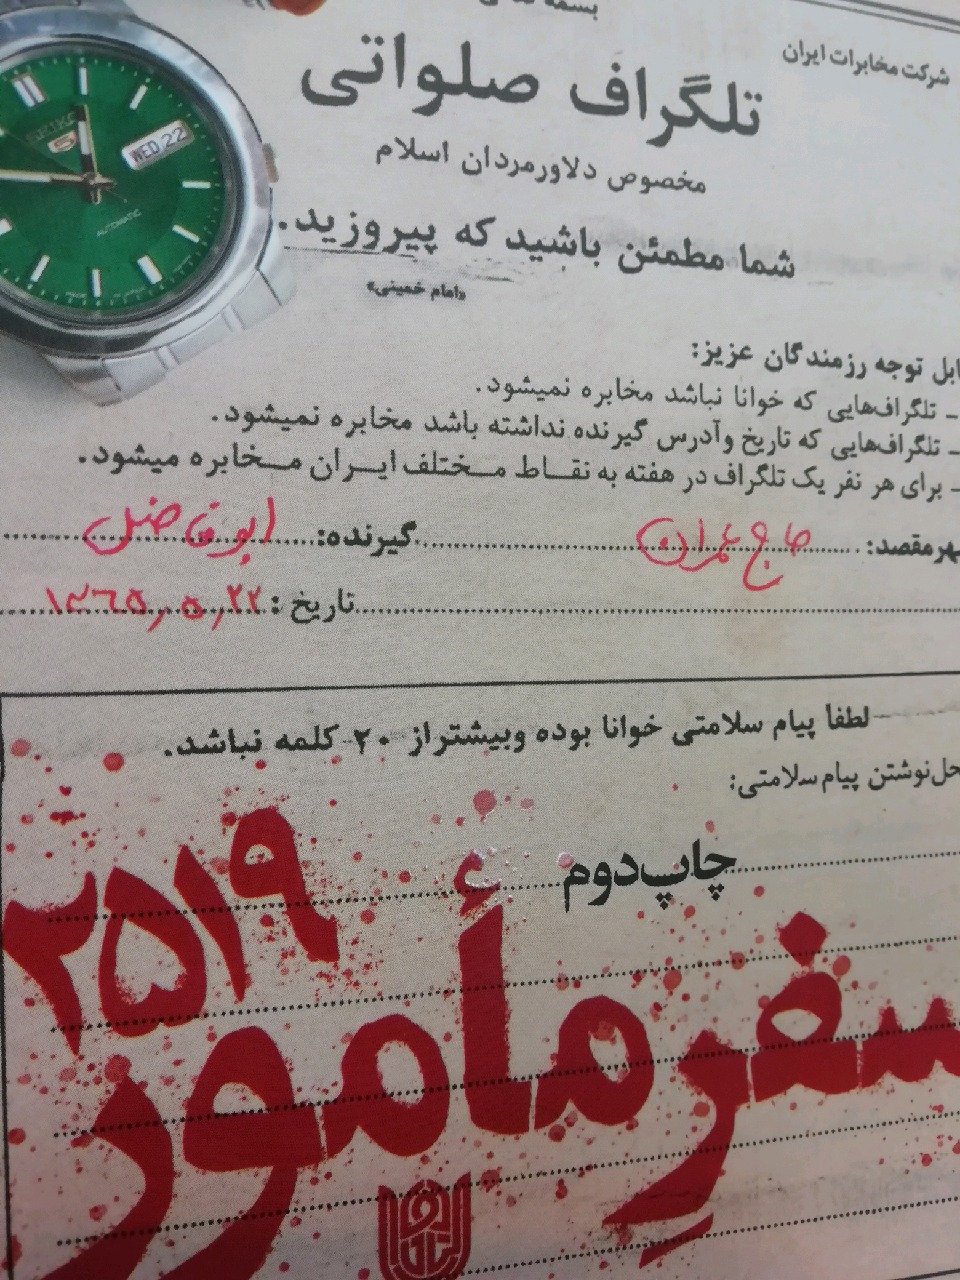 شرکت مخابرات ایران
تلگراف صلواتی
مخصوص دلاورمردان اسلام
شما مطمئن باشید که پیروزید.
«امام خمینی»
SEIKO
5
WED 22
AUTOMATIC
ابل توجه رزمندگان عزیز:
ـ تلگراف‌هایی که خوانا نباشد مخابره نمیشود.
ـ تلگراف‌هایی که تاریخ وآدرس گیرنده نداشته باشد مخابره نمیشود.
ـ برای هر نفر یک تلگراف در هفته به نقاط مختلف ایران مخابره میشود.
هرمقصد: حاج عمران گیرنده: ابوفاضل
تاریخ: ۱۳۶۵,۵,۲۲
لطفا پیام سلامتی خوانا بوده وبیشتر از ۲۰ کلمه نباشد.
حل‌نوشتن پیام سلامتی:
چاپ دوم
سفرِ مأمور
۲۵۱۹